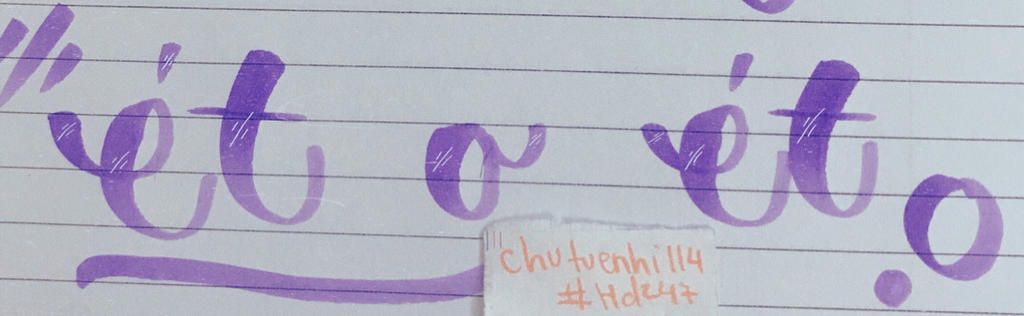 ét o ét
chutuenhi114
#Hdz47